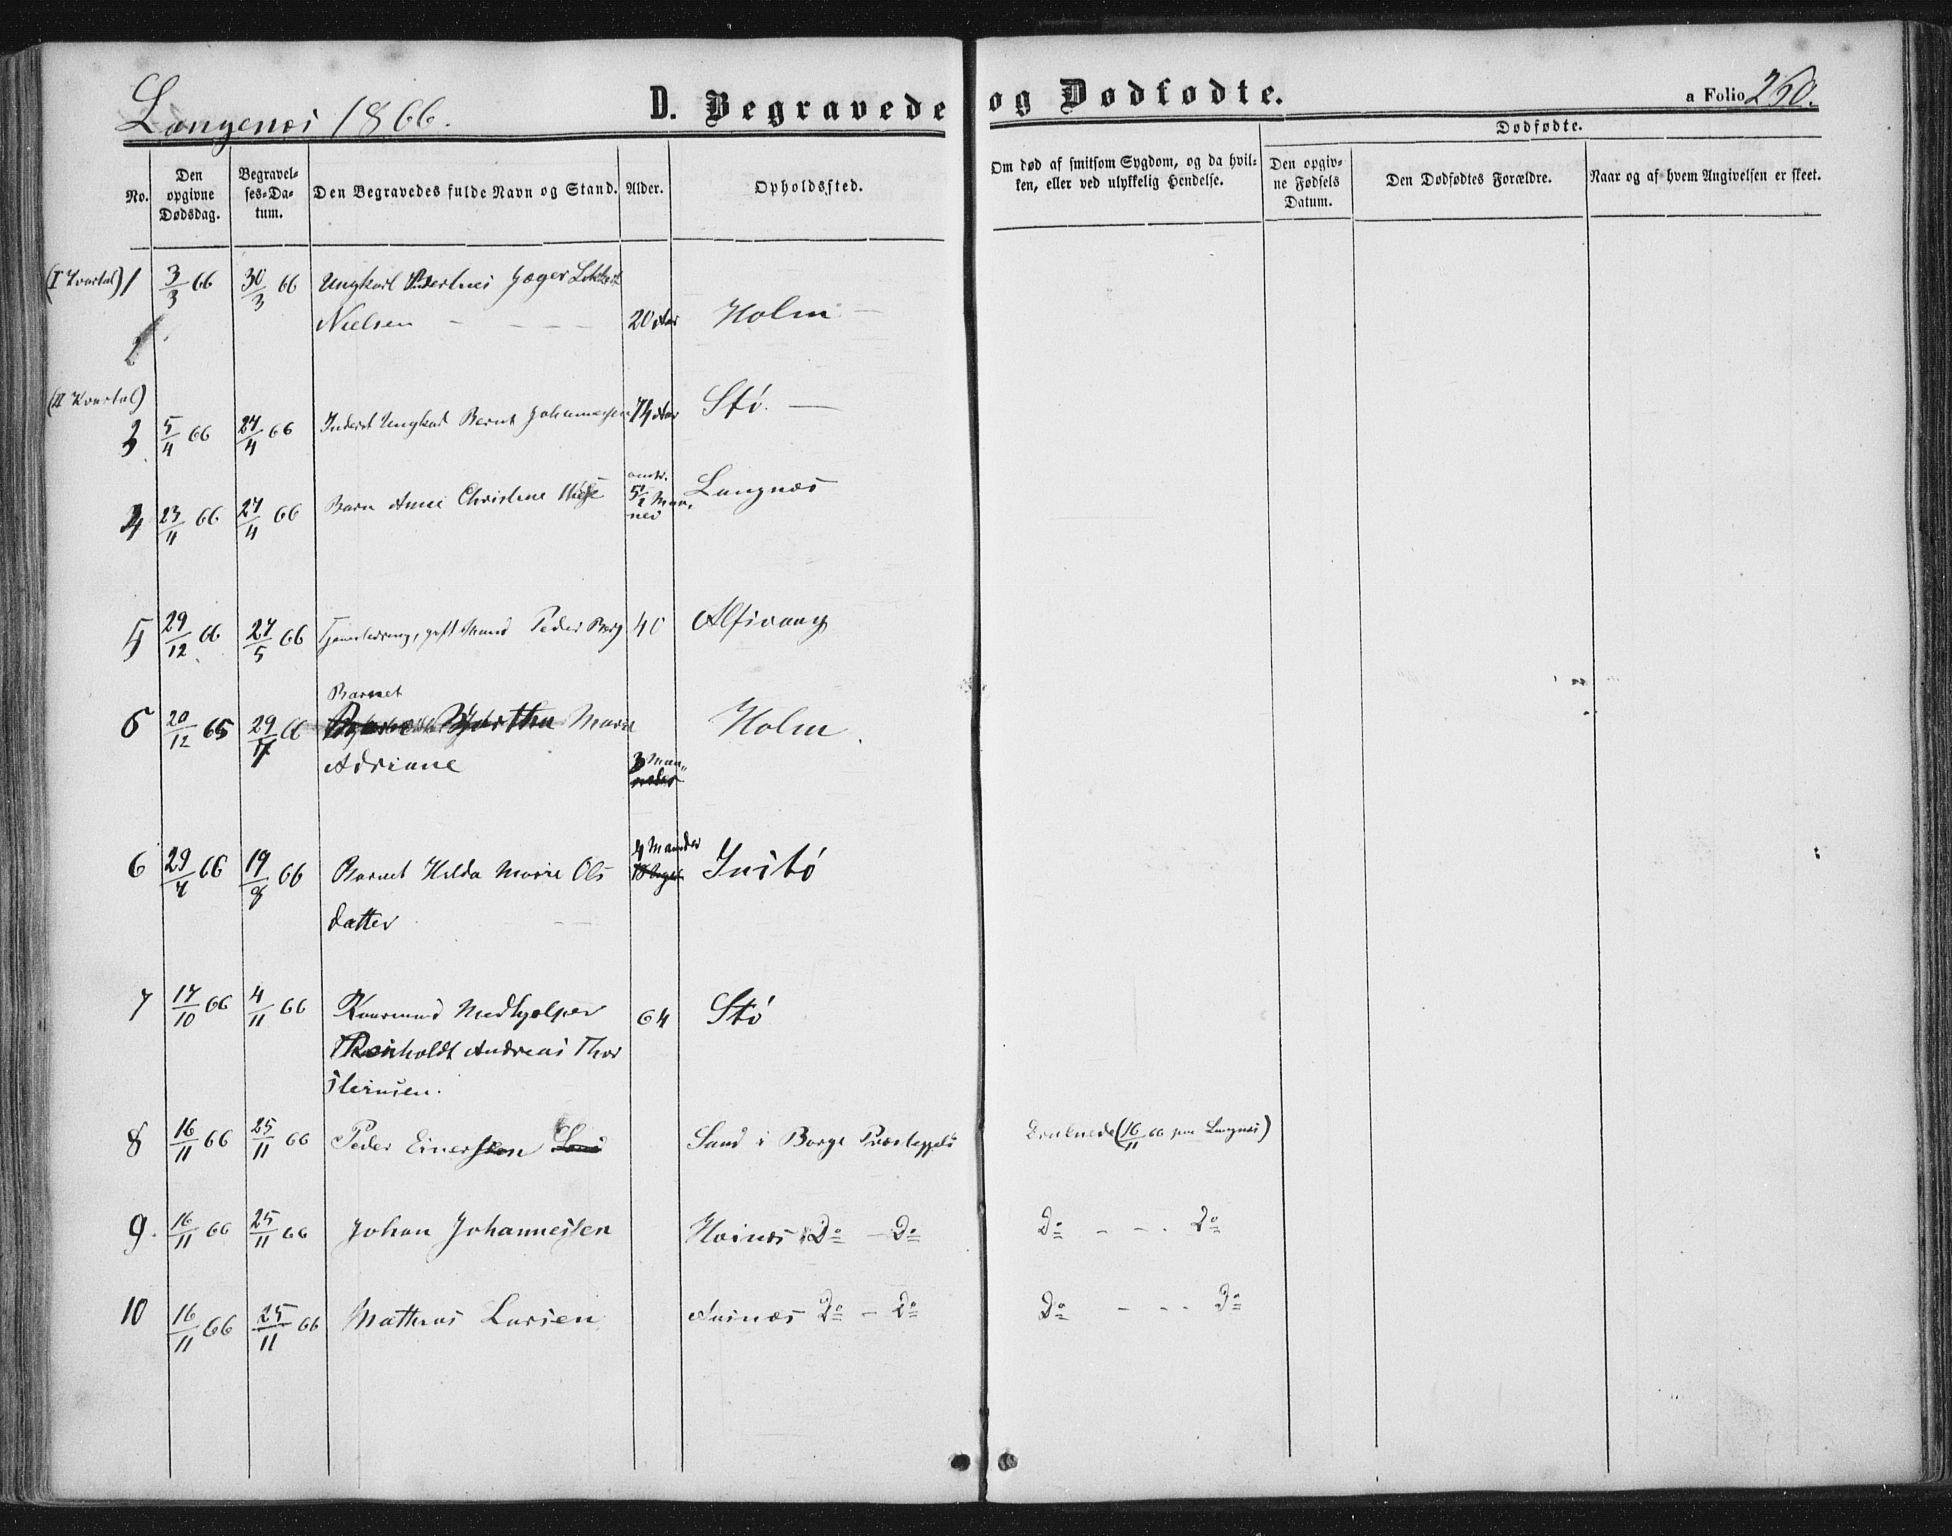 Langenæs 1866.
D. Begravede og Dødfødte.
a Folio 260.
No.
Den opgivne Dødsdag.
Begravelses-Datum.
Den Begravedes fulde Navn og Stand.
Alder.
Opholdssted.
Om død af smitsom Sygdom, og da hvilken, eller ved ulykkelig Hendelse.
Dødfødte.
Den opgivne Fødsels Datum.
Den Dødfødtes Forældre.
Naar og af hvem Angivelsen er skeet.
(I Kvartal) 1 3/3 66 30/3 66 Ungkarl Jæger
Nielsen 20 Aar Holm
(II Kvartal)
3 5/4 66 27/4 66 Inderst Ungkarl Bernt Johannessen Aar Stø.
4 23/4 66 27/4 66 Barn Anne Christine 5 1/2 Maaned Langnæs
5 29/12 66 27/5 66 gift Mand Peder Berg 40 Alfsvaag
Barnet
20/12 65 29/7 66 Marie
Adriane 3 Maaneder Holm
6 29/4 66 19/8 66 Barnet Hilda Marie Ols
datter 4 Maaneder
7 17/10 66 4/11 66 Medhjelper 64 Stø
Reinholdt Andreas Thor
steinsen.
8 16/11 66 25/11 66 Peder Einersen Sand i Borge Præstegjeld Druknede (16/11 66 paa Langnæs)
9. 16/11 66 25/11 66 Johan Johannessen Do - Do Do - - Do
10 16/11 66 25/11 66 Mathias Larsen Do - Do Do - - - Do